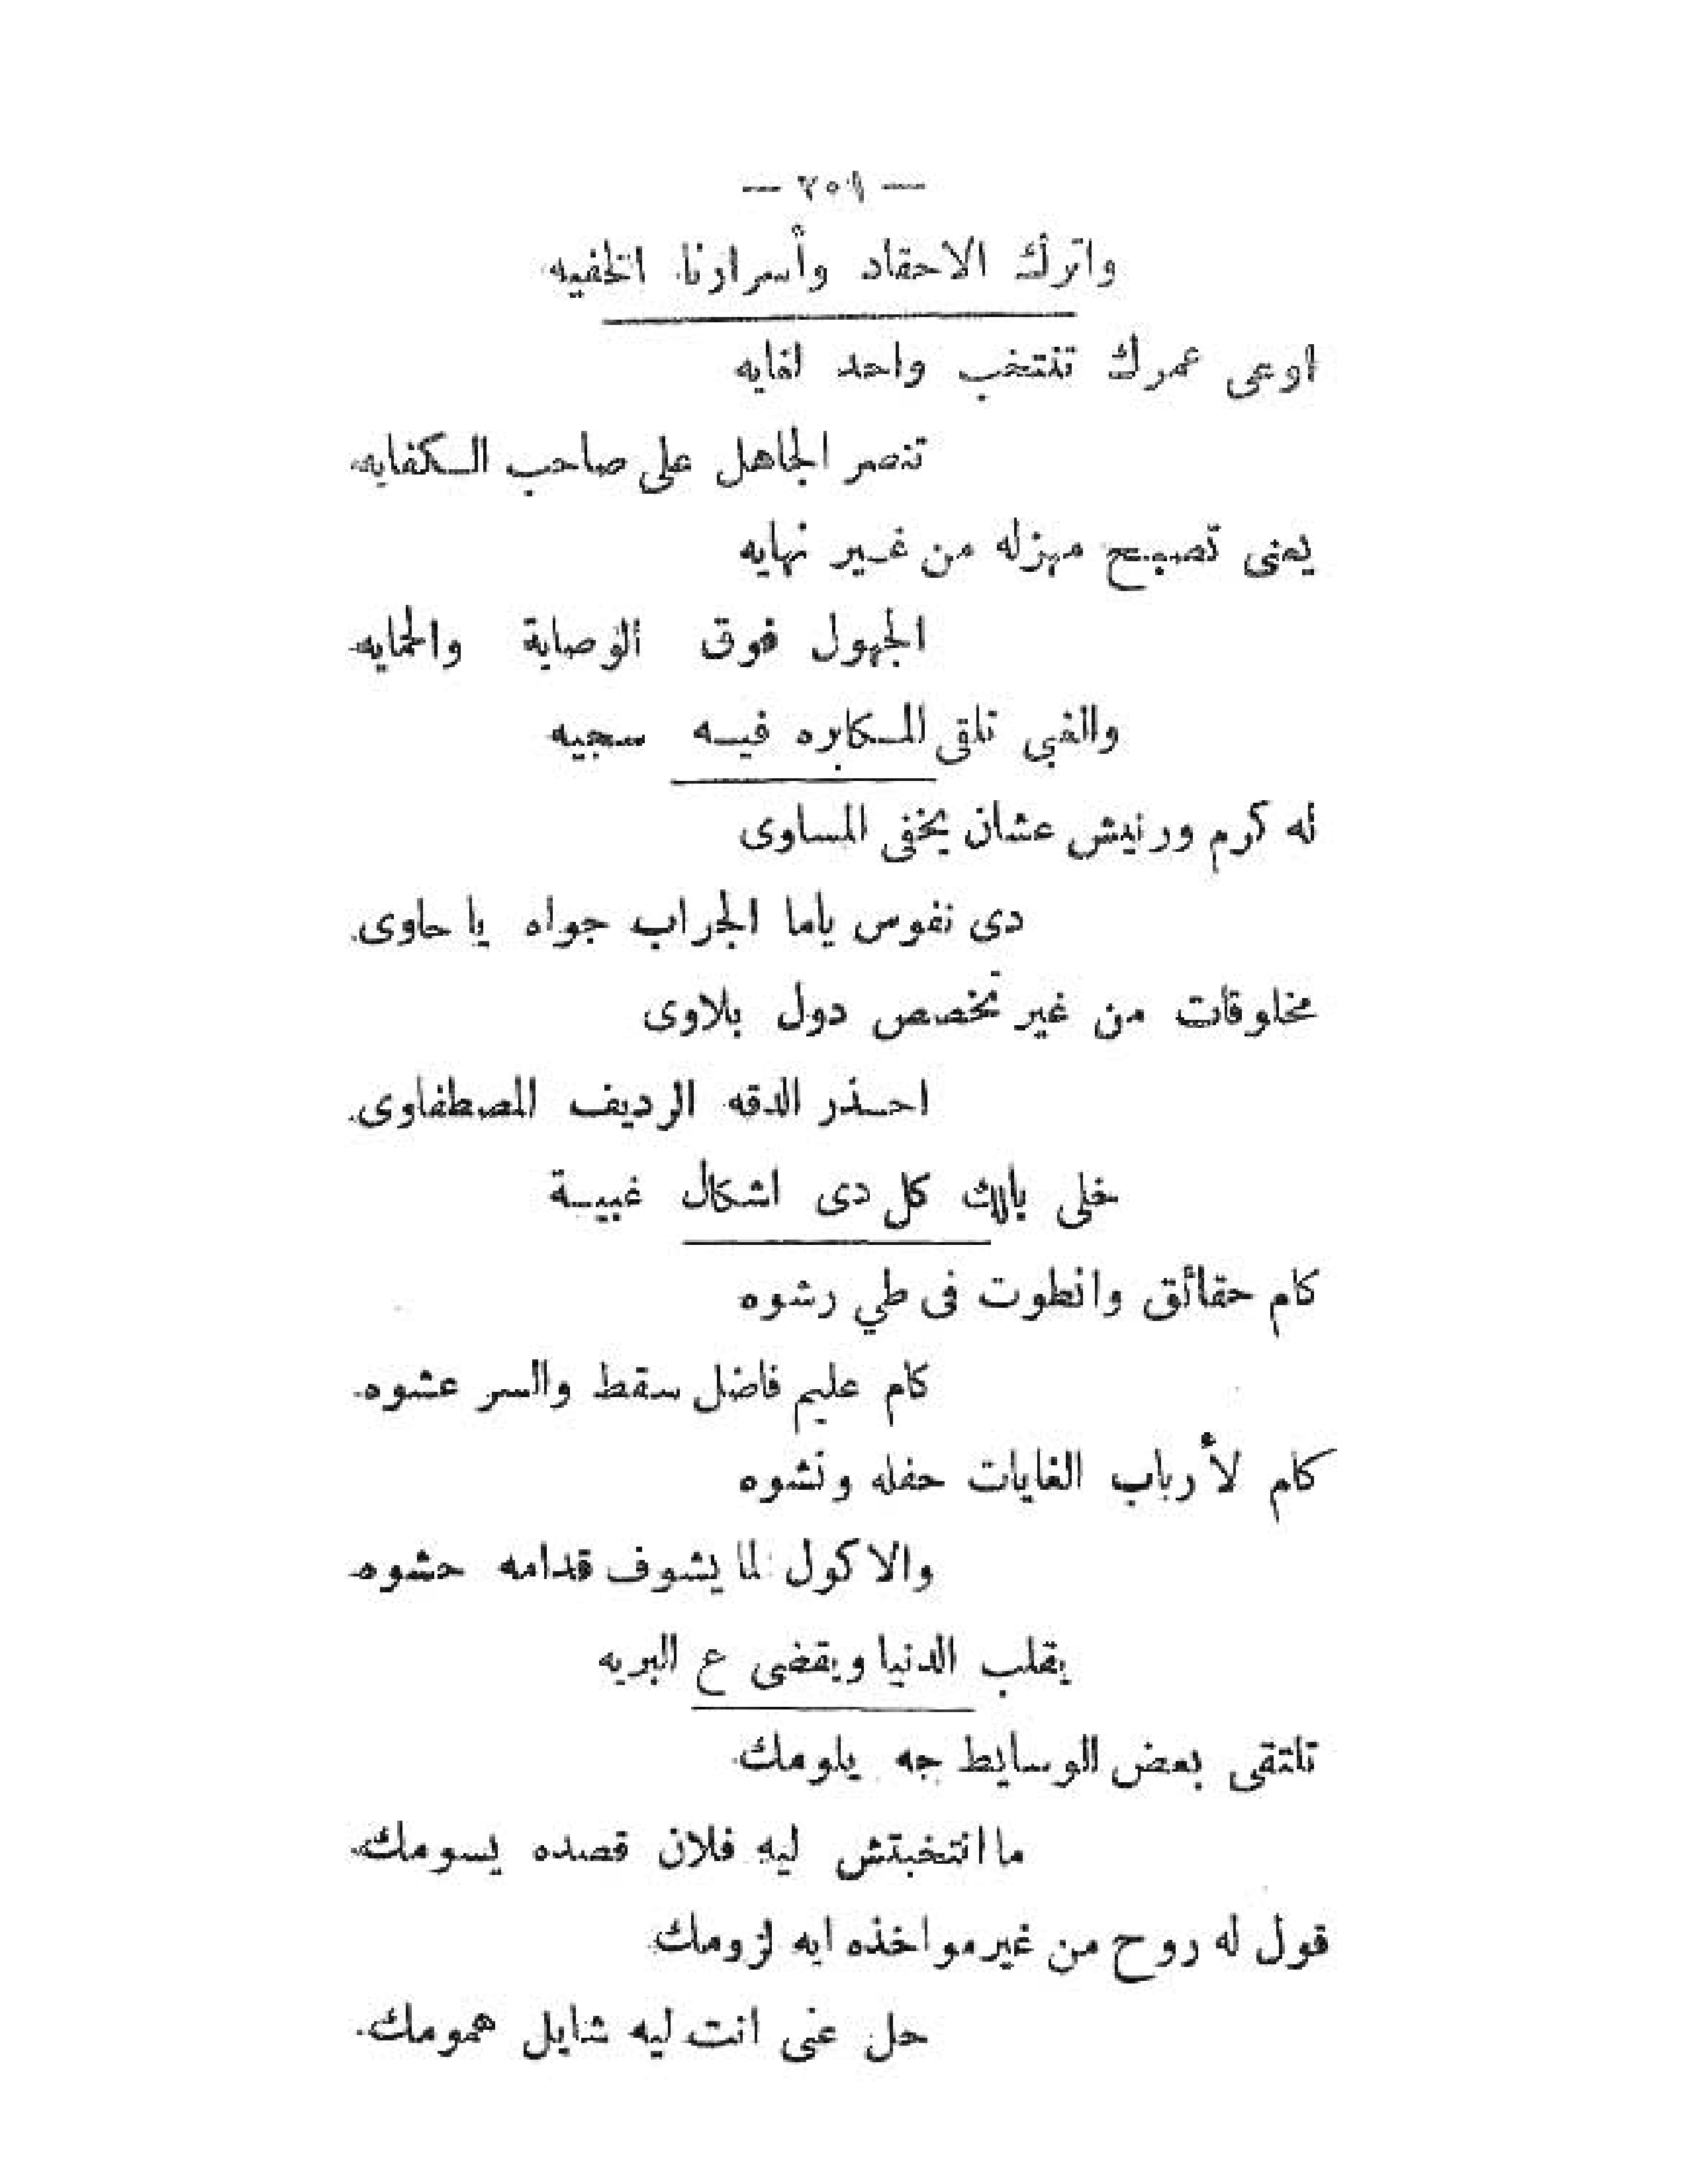 — ٢٥٩ —
واترك الاحقاد وأسرارنا الخفيه
اوعى عمرك تنتخب واحد لغايه
تنصر الجاهل على صاحب الكفايه
يعنى تصبح مهزله من غير نهايه
الجهول فوق الوصاية والحمايه
والغبي تلقى المكابره فيه سجيه
له كرم ورنيش عشان يخفى المساوى
دى نفوس ياما الجراب جواه يا حاوى
مخلوقات من غير تخصص دول بلاوى
احذر الدقه الرديف المصطفاوى
خلى بالك كل دى اشكال غبية
كام حقائق وانطوت فى طي رشوه
كام عليم فاضل سقط والسر عشوه
كام لأرباب الغايات حفله ونشوه
والاكول لما يشوف قدامه حشوه
يقلب الدنيا ويقضى ع البريه
تلتقى بعض الوسايط جه يلومك
ما انتخبتش ليه فلان قصده يسومك
قول له روح من غير مواخذه ايه لزومك
حل عنى انت ليه شايل همومك